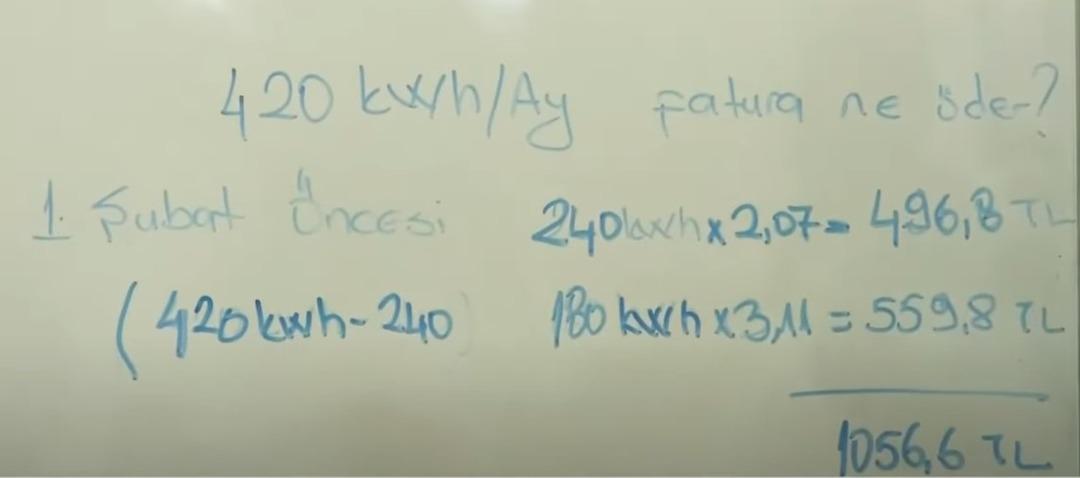 420 kwh/Ay fatura ne öder?
1 Şubat Öncesi 240kwh x 2,07 = 496,8 TL
(420kwh - 240 180 kwh x 3,11 = 559,8 TL
1056,6 TL